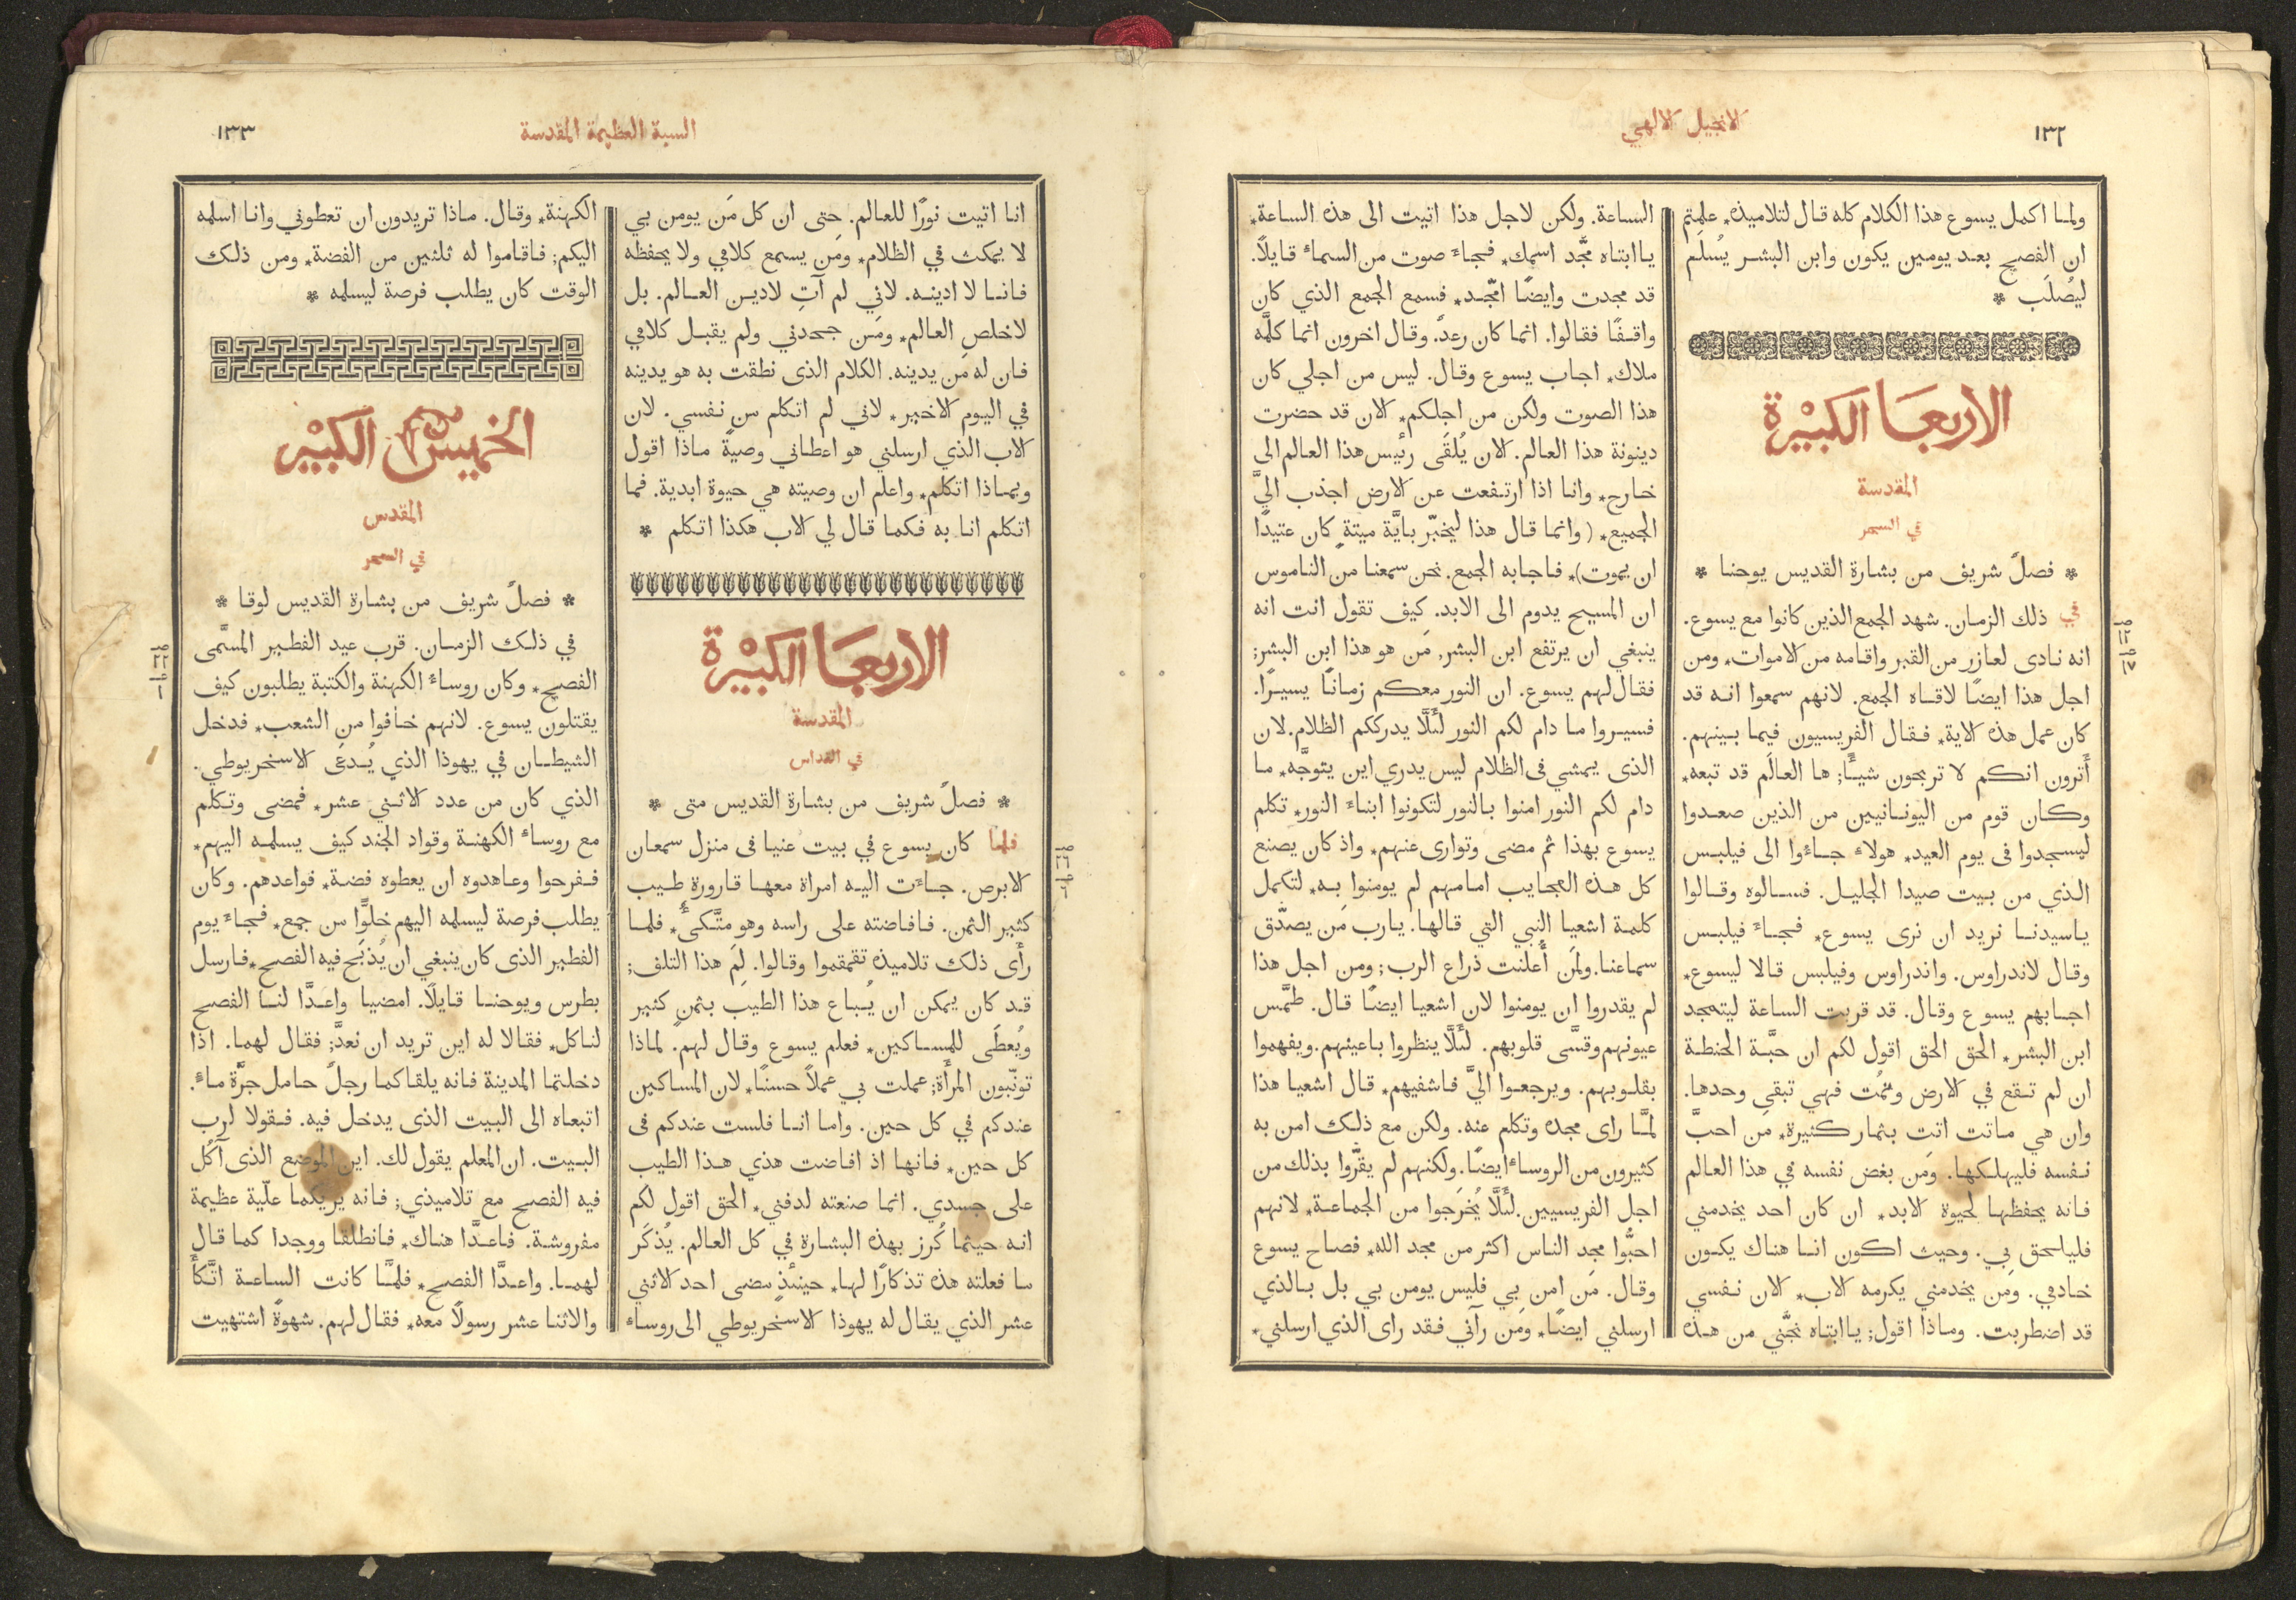 ١٣٢
الانجيل الالهي
ولما اكمل يسوع هذا الكلام كله قال لتلاميذه٭ علمتم
ان الفصح بعد يومين يكون وابن البشر يُسلَم
ليُصلَب ٭
الاربعا الكبيرة
المقدسة
في السحر
٭ فصلً شريف من بشارة القديس يوحنا ٭
في ذلك الزمان. شهد الجمع الذين كانوا مع يسوع.
انه نادى لعازر من القبر واقامه من الاموات٭ ومن
اجل هذا ايضًا لاقاه الجمع. لانهم سمعوا انه قد
كان عمل هذه الاية٭ فقال الفريسيون فيما بينهم.
أَترون انكم لا تربحون شيئًا; ها العالَم قد تبعه٭
وكان قوم من اليونانيين من الذين صعدوا
ليسجدوا فى يوم العيد٭ هولاء جاءوا الى فيلبس
الذي من بيت صيدا الجليل. فسالوه وقالوا
ياسيدنا نريد ان نرى يسوع٭ فجاء فيلبس
وقال لاندراوس. واندراوس وفيلبس قالا ليسوع٭
اجابهم يسوع وقال. قد قربت الساعة ليتمجد
ابن البشر٭ الحق الحق اقول لكم ان حبَّة الحنطة
ان لم تقع في الارض وتمُت فهي تبقى وحدها.
وان هي ماتت اتت بثمار كثيرة٭ مَن احبَّ
نفسه فليهلكها. وَمَن بغض نفسه في هذا العالم
فانه يحفظها لحيوة الابد٭ ان كان احد يخدمني
فليلحق بي. وحيث اكون انا هناك يكون
خادمي. ومَن يخدمني يكرمه الاب٭ الان نفسي
قد اضطربت. وماذا اقول; ياابتاه نجّني من هذه
ص١٢ف١٧
الساعة. ولكن لاجل هذا اتيت الى هذه الساعة٭
ياابتاه مجّد اسمك٭ فجاء صوت من السماء قايلاً.
قد مجدت وايضًا امجّد٭ فسمع الجمع الذي كان
واقفًا فقالوا. انما كان رعدً. وقال اخرون انما كلَّمه
ملاك٭ اجاب يسوع وقال. ليس من اجلي كان
هذا الصوت ولكن من اجلكم٭ الان قد حضرت
دينونة هذا العالم. الان يُلقَى رئيس هذا العالم الى
خارج٭ وانا اذا ارتفعت عن الارض اجذب اليَّ
الجميع٭ (وانما قال هذا ليخبّر بايَّة ميتةٍ كان عتيدًا
ان يموت)٭ فاجابه الجمع. نحن سمعنا من الناموس
ان المسيح يدوم الى الابد. كيف تقول انت انه
ينبغي ان يرتفع ابن البشر, مَن هو هذا ابن البشر;
فقال لهم يسوع. ان النور معكم زمانًا يسيرًا.
فسيروا ما دام لكم النور لئلَّا يدرككم الظلام. لان
الذى يمشي فى الظلام ليس يدري اين يتوجَّه٭ ما
دام لكم النور امنوا بالنور لتكونوا ابناء النور٭ تكلم
يسوع بهذا ثم مضى وتوارى عنهم٭ واذ كان يصنع
كل هذه العجايب امامهم لم يومنوا به٭ لتكمل
كلمة اشعيا النبي التي قالها. يارب مَن يصدّق
سماعنا. ولمَن أُعلنت ذراع الرب; ومن اجل هذا
لم يقدروا ان يومنوا لان اشعيا ايضًا قال. طمَّس
عيونهم وقسَّى قلوبهم. لئلَّا ينظروا باعينهم. ويفهموا
بقلوبهم. ويرجعوا اليَّ فاشفيهم٭ قال اشعيا هذا
لمَّا راى مجده وتكلم عنه. ولكن مع ذلك امن به
كثيرون من الروساء ايضًا. ولكنهم لم يقرّوا بذلك من
اجل الفريسيين. لئَلَّا يُخرَجوا من الجماعة٭ لانهم
احبُّوا مجد الناس اكثر من مجد الله٭ فصاح يسوع
وقال. مَن امن بي فليس يومن بي بل بالذي
ارسلني ايضًا٭ ومَن رآني فقد راى الذي ارسلني٭
السبة العظيمة المقدسة
١٣٣
انا اتيت نورًا للعالم. حتى ان كل مَن يومن بي
لا يمكث في الظلام٭ ومَن يسمع كلامي ولا يحفظه
فانا لا ادينه. لاني لم آتِ لادين العالم. بل
لاخلص العالم٭ ومَن جحدني ولم يقبل كلامي
فان له مَن يدينه. الكلام الذى نطقت به هو يدينه
في اليوم الاخير٭ لاني لم اتكلم من نفسي. لان
الاب الذي ارسلني هو اعطاني وصيةً ماذا اقول
وبماذا اتكلم٭ واعلم ان وصيته هي حيوة ابدية. فما
اتكلم انا به فكما قال لي الاب هكذا اتكلم ٭
الاربعا الكبيرة
المقدسة
في القداس
٭ فصلً شريف من بشارة القديس متى ٭
فلما كان يسوع في بيت عنيا فى منزل سمعان
الابرص. جاءت اليه امراة معها قارورة طيب
كثير الثمن. فافاضته على راسه وهو متَّكىٌ٭ فلما
رأى ذلك تلاميذه تقمقموا وقالوا. لِمَ هذا التلف;
قد كان يمكن ان يُباع هذا الطيب بثمنٍ كثير
ويُعطَى للمساكين٭ فعلم يسوع وقال لهم. لماذا
تونّبون المرأَة; عملت بي عملاً حسنًا٭ لان المساكين
عندكم في كل حين. واما انا فلست عندكم فى
كل حين٭ فانها اذ افاضت هذي هذا الطيب
على جسدي. انما صنعته لدفني٭ الحق اقول لكم
انه حيثما كُرز بهذه البشارة في كل العالم. يُذكَر
ما فعلته هذه تذكارًا لها٭ حينئذٍ مضى احد الاثني
عشر الذي يقال له يهوذا الاسخريوطي الى روساء
ص٢٦ف٦
الكهنة٭ وقال. ماذا تريدون ان تعطوني وانا اسلمه
اليكم; فاقاموا له ثلثين من الفضة٭ ومن ذلك
الوقت كان يطلب فرصة ليسلمه ٭
الخميس الكبير
المقدس
في السحر
٭ فصلً شريف من بشارة القديس لوقا ٭
في ذلك الزمان. قرب عيد الفطير المسَّمى
الفصح٭ وكان روساء الكهنة والكتبة يطلبون كيف
يقتلون يسوع. لانهم خافوا من الشعب٭ فدخل
الشيطان في يهوذا الذي يُدعَى الاسخريوطي.
الذي كان من عدد الاثني عشر٭ فمضى وتكلم
مع روساء الكهنة وقواد الجند كيف يسلمه اليهم٭
ففرحوا وعاهدوه ان يعطوه فضة٭ فواعدهم. وكان
يطلب فرصة ليسلمه اليهم خلوًّا من جمع٭ فجاء يوم
الفطير الذى كان ينبغي ان يُذبَح فيه الفصح٭ فارسل
بطرس ويوحنا قايلًا. امضيا واعدَّا لنا الفصح
لناكل٭ فقالا له اين تريد ان نعدَّ; فقال لهما. اذا
دخلتما المدينة فانه يلقاكما رجلً حامل جرَّة ماءً.
اتبعاه الى البيت الذى يدخل فيه. فقولا لرب
البيت. ان المعلم يقول لك. اين الموضع الذى آكُل
فيه الفصح مع تلاميذي; فانه يريكما علّية عظيمة
مفروشة. فاعدَّا هناك٭ فانطلقا ووجدا كما قال
لهما. واعدَّا الفصح٭ فلمَّا كانت الساعة اتَّكأَ
والاثنا عشر رسولاً معه٭ فقال لهم. شهوةً اشتهيت
ص٢٢ف١